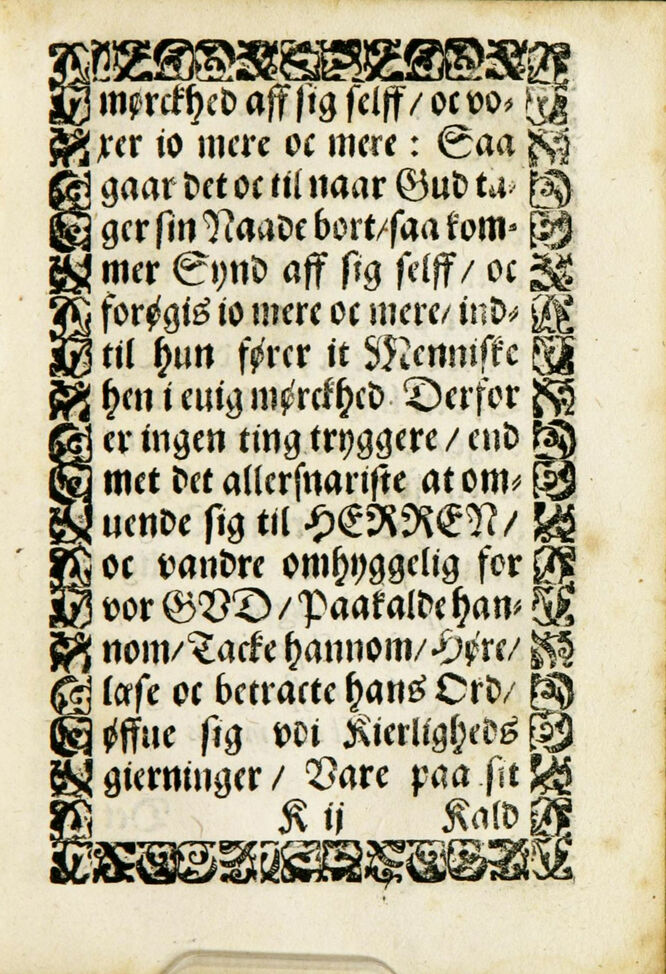 mørckhed aff sig selff / oc vo⸗
xer io mere oc mere : Saa
gaar det oc til naar Gud ta⸗
ger sin Naade bort/ saa kom⸗
mer Synd aff sig selff / oc
forøgis io mere oc mere/ ind⸗
til hun fører it Menniske
hen i euig mørckhed. Derfor
er ingen ting tryggere / end
met det allersnariste at om⸗
uende sig til HERREN /
oc vandre omhyggelig for
vor GVD / Paakalde han⸗
nom/ Tacke hannom/ Høre/
læse oc betracte hans Ord/
øffue sig vdi Kierligheds
gierninger / Vare paa sit
K ij Kald